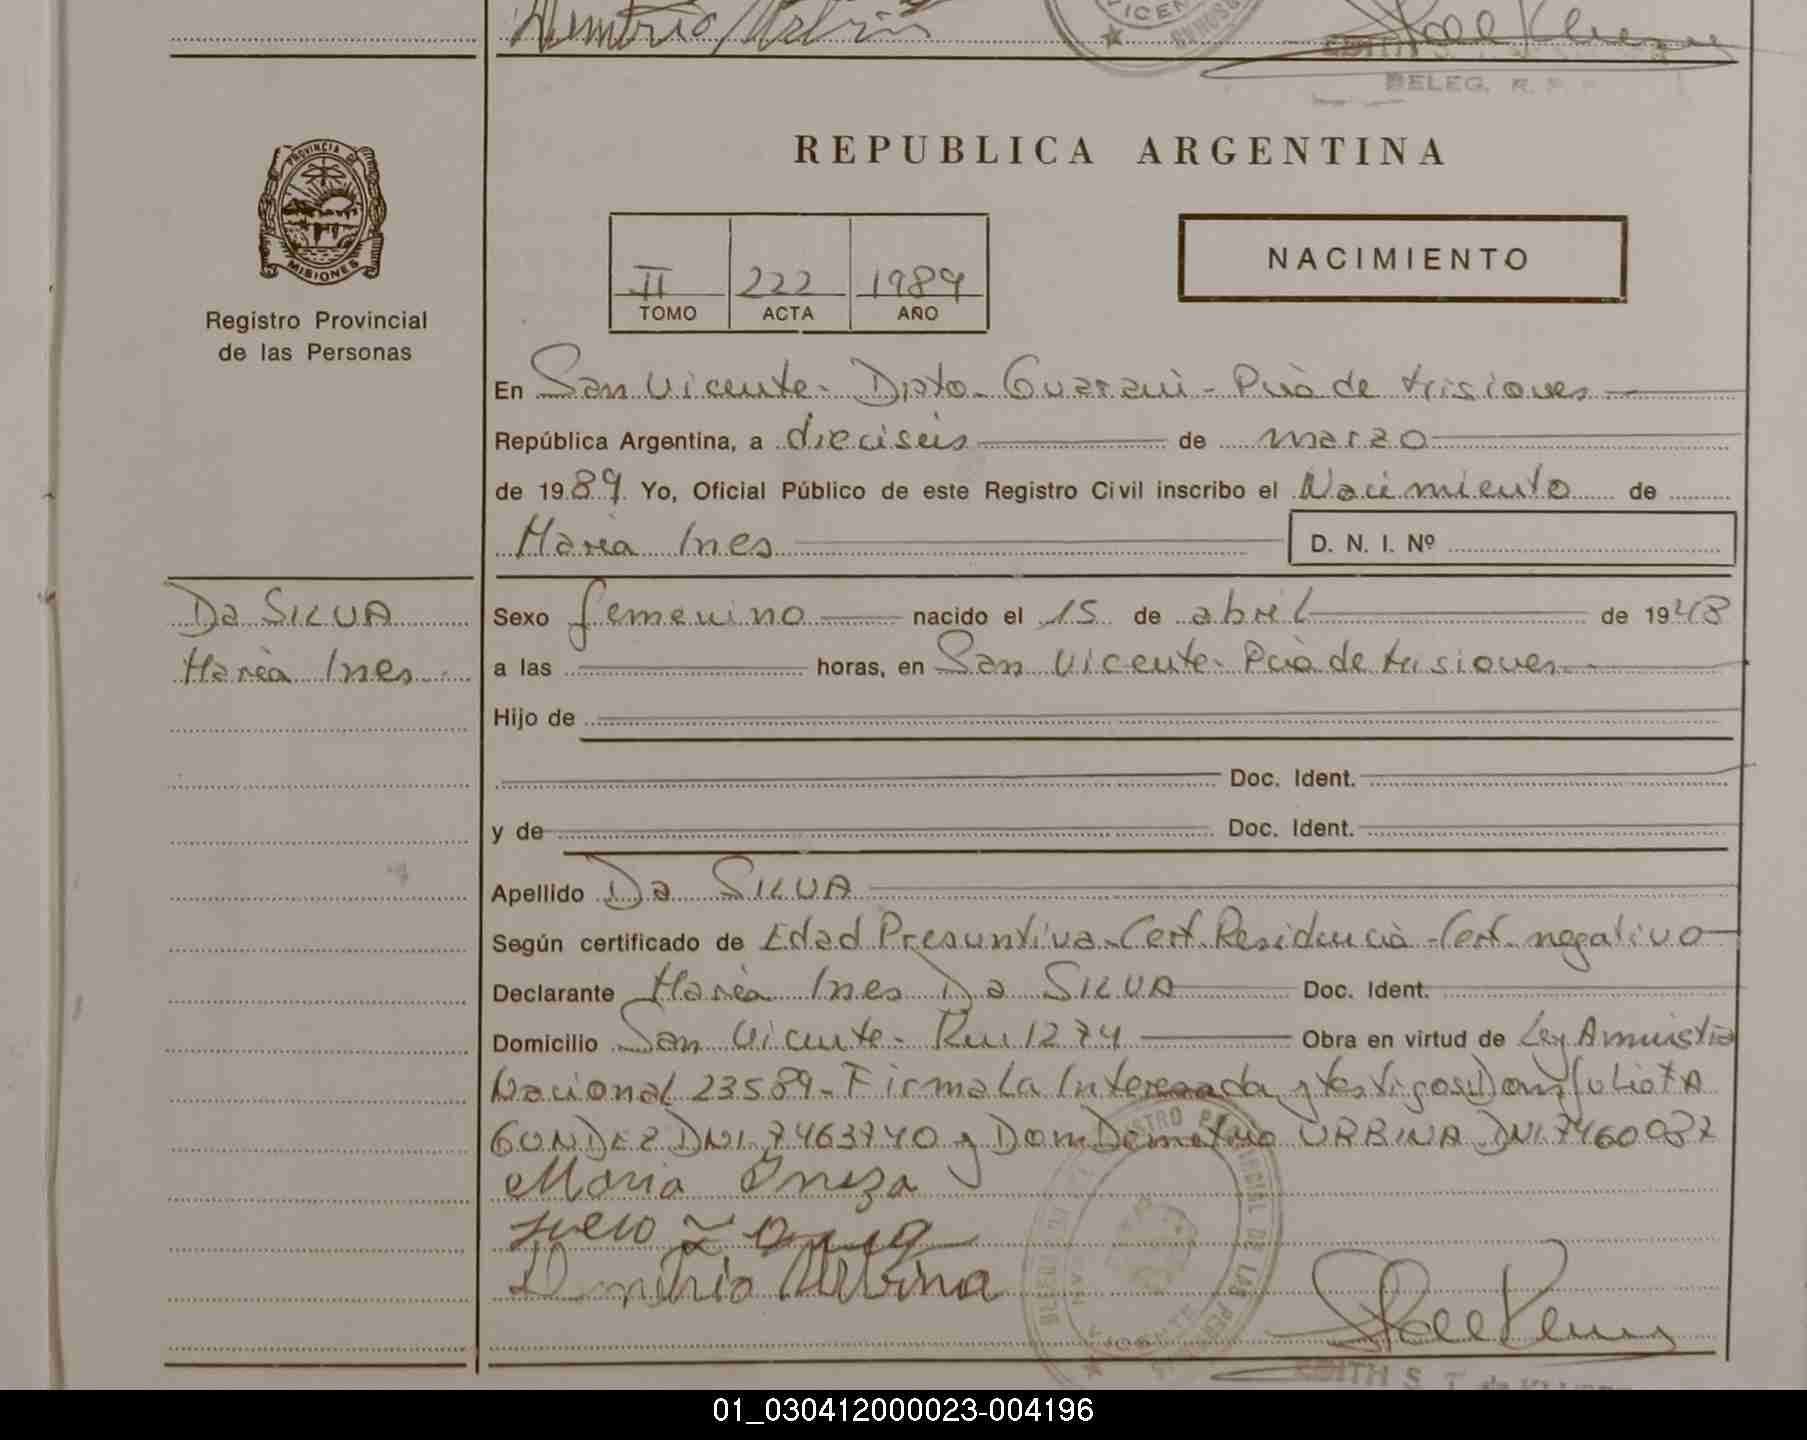 Demetrio Urbina
VICEN
DELEG. R. P.
PROVINCIA DE
MISIONES
Registro Provincial
de las Personas
REPUBLICA ARGENTINA
II 222 1989
TOMO ACTA AÑO
NACIMIENTO
En San Vicente - Dpto - Guaraní - Pcia de Misiones
República Argentina, a dieciseis de marzo
de 1989 Yo, Oficial Público de este Registro Civil inscribo el Nacimiento de
María Ines D. N. I. Nº
Da SILVA
María Ines
Sexo femenino nacido el 15 de abril de 1948
a las horas, en San Vicente - Pcia de Misiones
Hijo de
Doc. Ident.
y de Doc. Ident.
Apellido Da SILVA
Según certificado de Edad Presuntiva - Cert. Residencia - Cert. negativo
Declarante María Ines Da SILVA Doc. Ident.
Domicilio San Vicente - Km 1274 Obra en virtud de Ley Amnistia
Nacional 23589 - Firma La Interesada y testigos Don Julio TA
GUNDEZ DNI. 7463740 y Don Demetrio URBINA DNI. 7460087
Maria Ineza
Demetrio Urbina
REGISTRO PROVINCIAL DE LAS PERSONAS
VICENTE
EDITH S. T. de
01_030412000023-004196